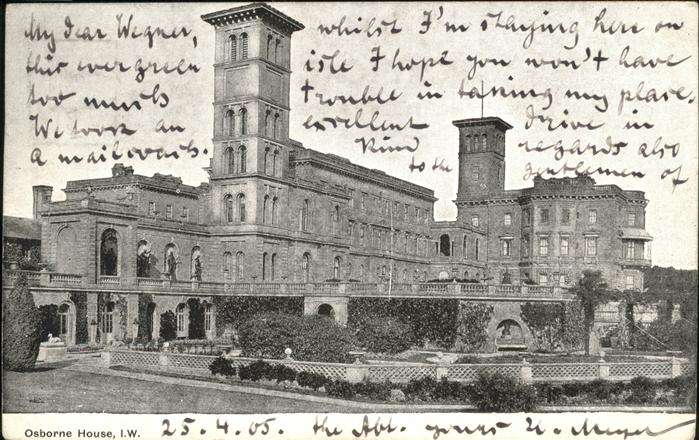 My dear Wegner, whilst I'm staying here on
this evergreen isle I hope you won't have
too much trouble in taking my place.
We took an excellent drive in
a mailcoach. Kind regards also
to the gentlemen of
Osborne House, I.W. 25.4.05. the Abt. yours U. Meyer